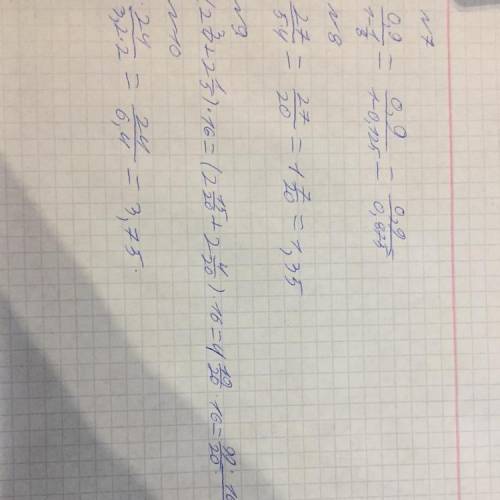 N7
0,9/(1-1/8) = 0,9/(1-0,125) = 0,9/0,875
N8
27/54 = 27/20 = 1 7/20 = 1,35
N9
(2 3/4 + 2 1/5) · 16 = (2 15/20 + 2 4/20) · 16 = 4 19/20 · 16 =
N10
24/3,2·2 = 24/6,4 = 3,75.